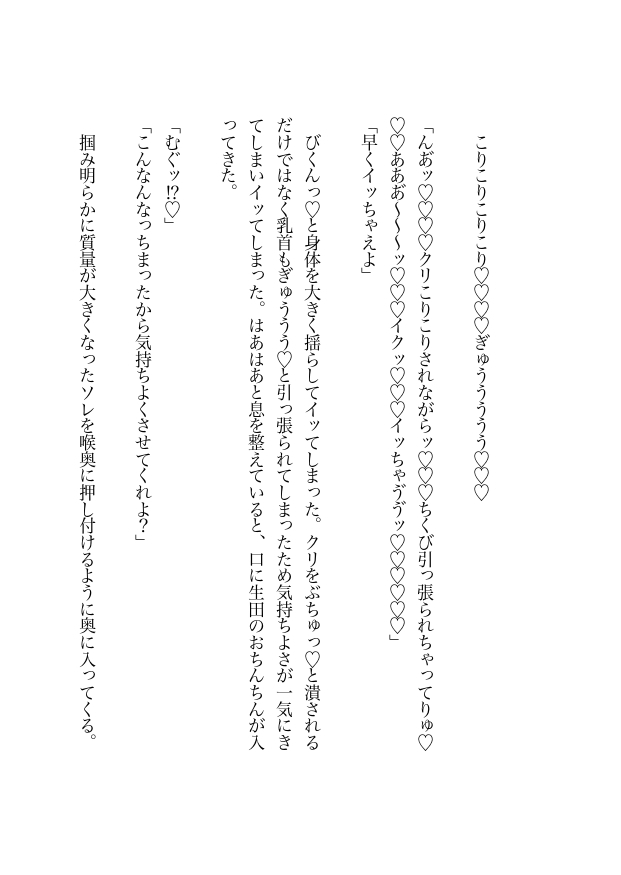 こりこりこりこり♡♡♡♡ぎゅうううう♡♡♡
「んあ゙ッ♡♡♡♡クリこりこりされながらッ♡♡♡ちくび引っ張られちゃってりゅ♡
♡♡あああ゙～～～ッ♡♡♡イクッ♡♡♡イッちゃゔゔッ♡♡♡♡♡♡」
「早くイッちゃえよ」
びくんっ♡と身体を大きく揺らしてイッてしまった。クリをぶちゅっ♡と潰される
だけではなく乳首もぎゅううう♡と引っ張られてしまったため気持ちよさが一気にき
てしまいイッてしまった。はあはあと息を整えていると、口に生田のおちんちんが入
ってきた。
「むぐッ⁉♡」
「こんなんなっちまったから気持ちよくさせてくれよ？」
掴み明らかに質量が大きくなったソレを喉奥に押し付けるように奥に入ってくる。